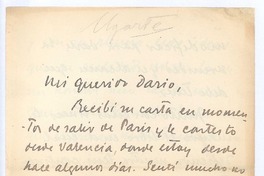 Ugarte
Mi querido Dario,
Recibí su carta en momen-
tos de salir de Paris y le contesto
desde Valencia, donde estoy desde
hace algunos días. Sentí mucho no